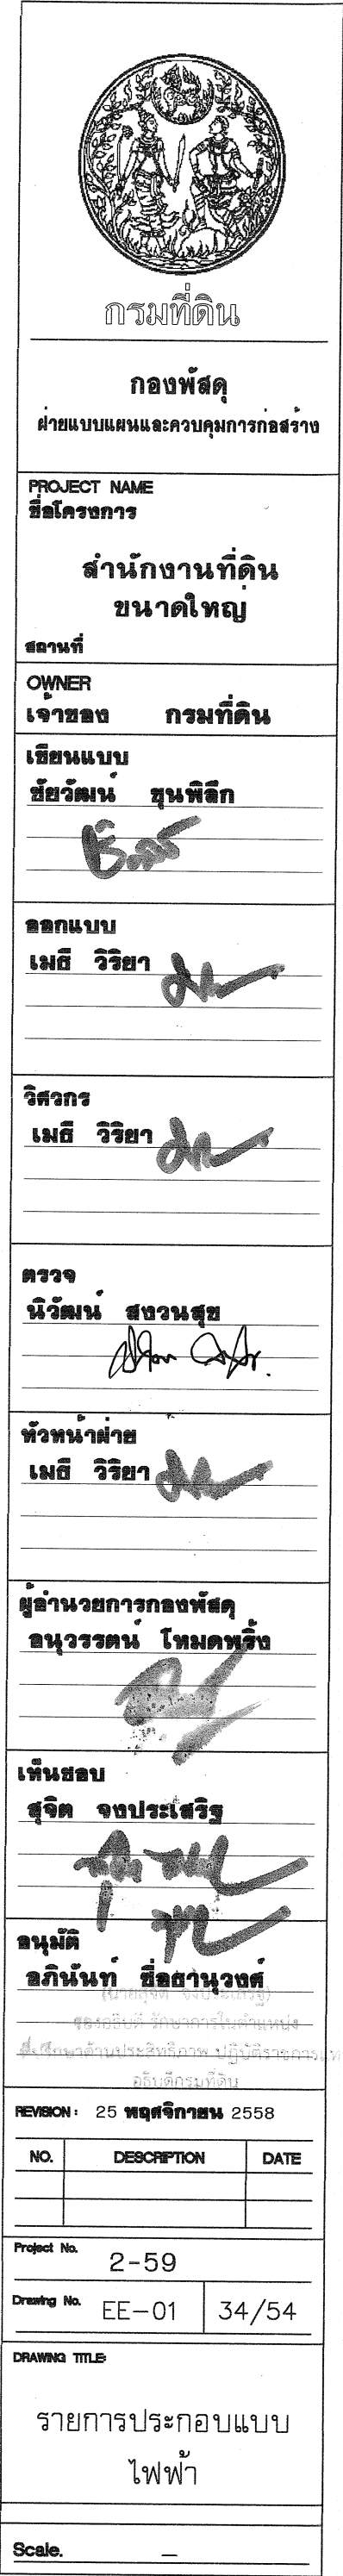 กรมที่ดิน
กองพัสดุ
ฝ่ายแบบแผนและควบคุมการก่อสร้าง
PROJECT NAME
ชื่อโครงการ
สำนักงานที่ดิน
ขนาดใหญ่
สถานที่
OWNER
เจ้าของ กรมที่ดิน
เขียนแบบ
ชัยวัฒน์ ขุนพิลึก
ออกแบบ
เมธี วิริยา
วิศวกร
เมธี วิริยา
ตรวจ
นิวัฒน์ สงวนสุข
หัวหน้าฝ่าย
เมธี วิริยา
ผู้อำนวยการกองพัสดุ
อนุวรรตน์ โหมดพริ้ง
เห็นชอบ
สุจิต จงประเสริฐ
อนุมัติ
อภินันท์ ซื่อธานุวงศ์
(นายสุจิต จงประเสริฐ)
รองอธิบดี รักษาการในตำแหน่ง
ที่ปรึกษาด้านประสิทธิภาพ ปฏิบัติราชการแท
อธิบดีกรมที่ดิน
REVISION : 25 พฤศจิกายน 2558
NO. DESCRIPTION DATE
Project No. 2-59
Drawing No. EE-01 34/54
DRAWING TITLE:
รายการประกอบแบบ
ไฟฟ้า
Scale. —